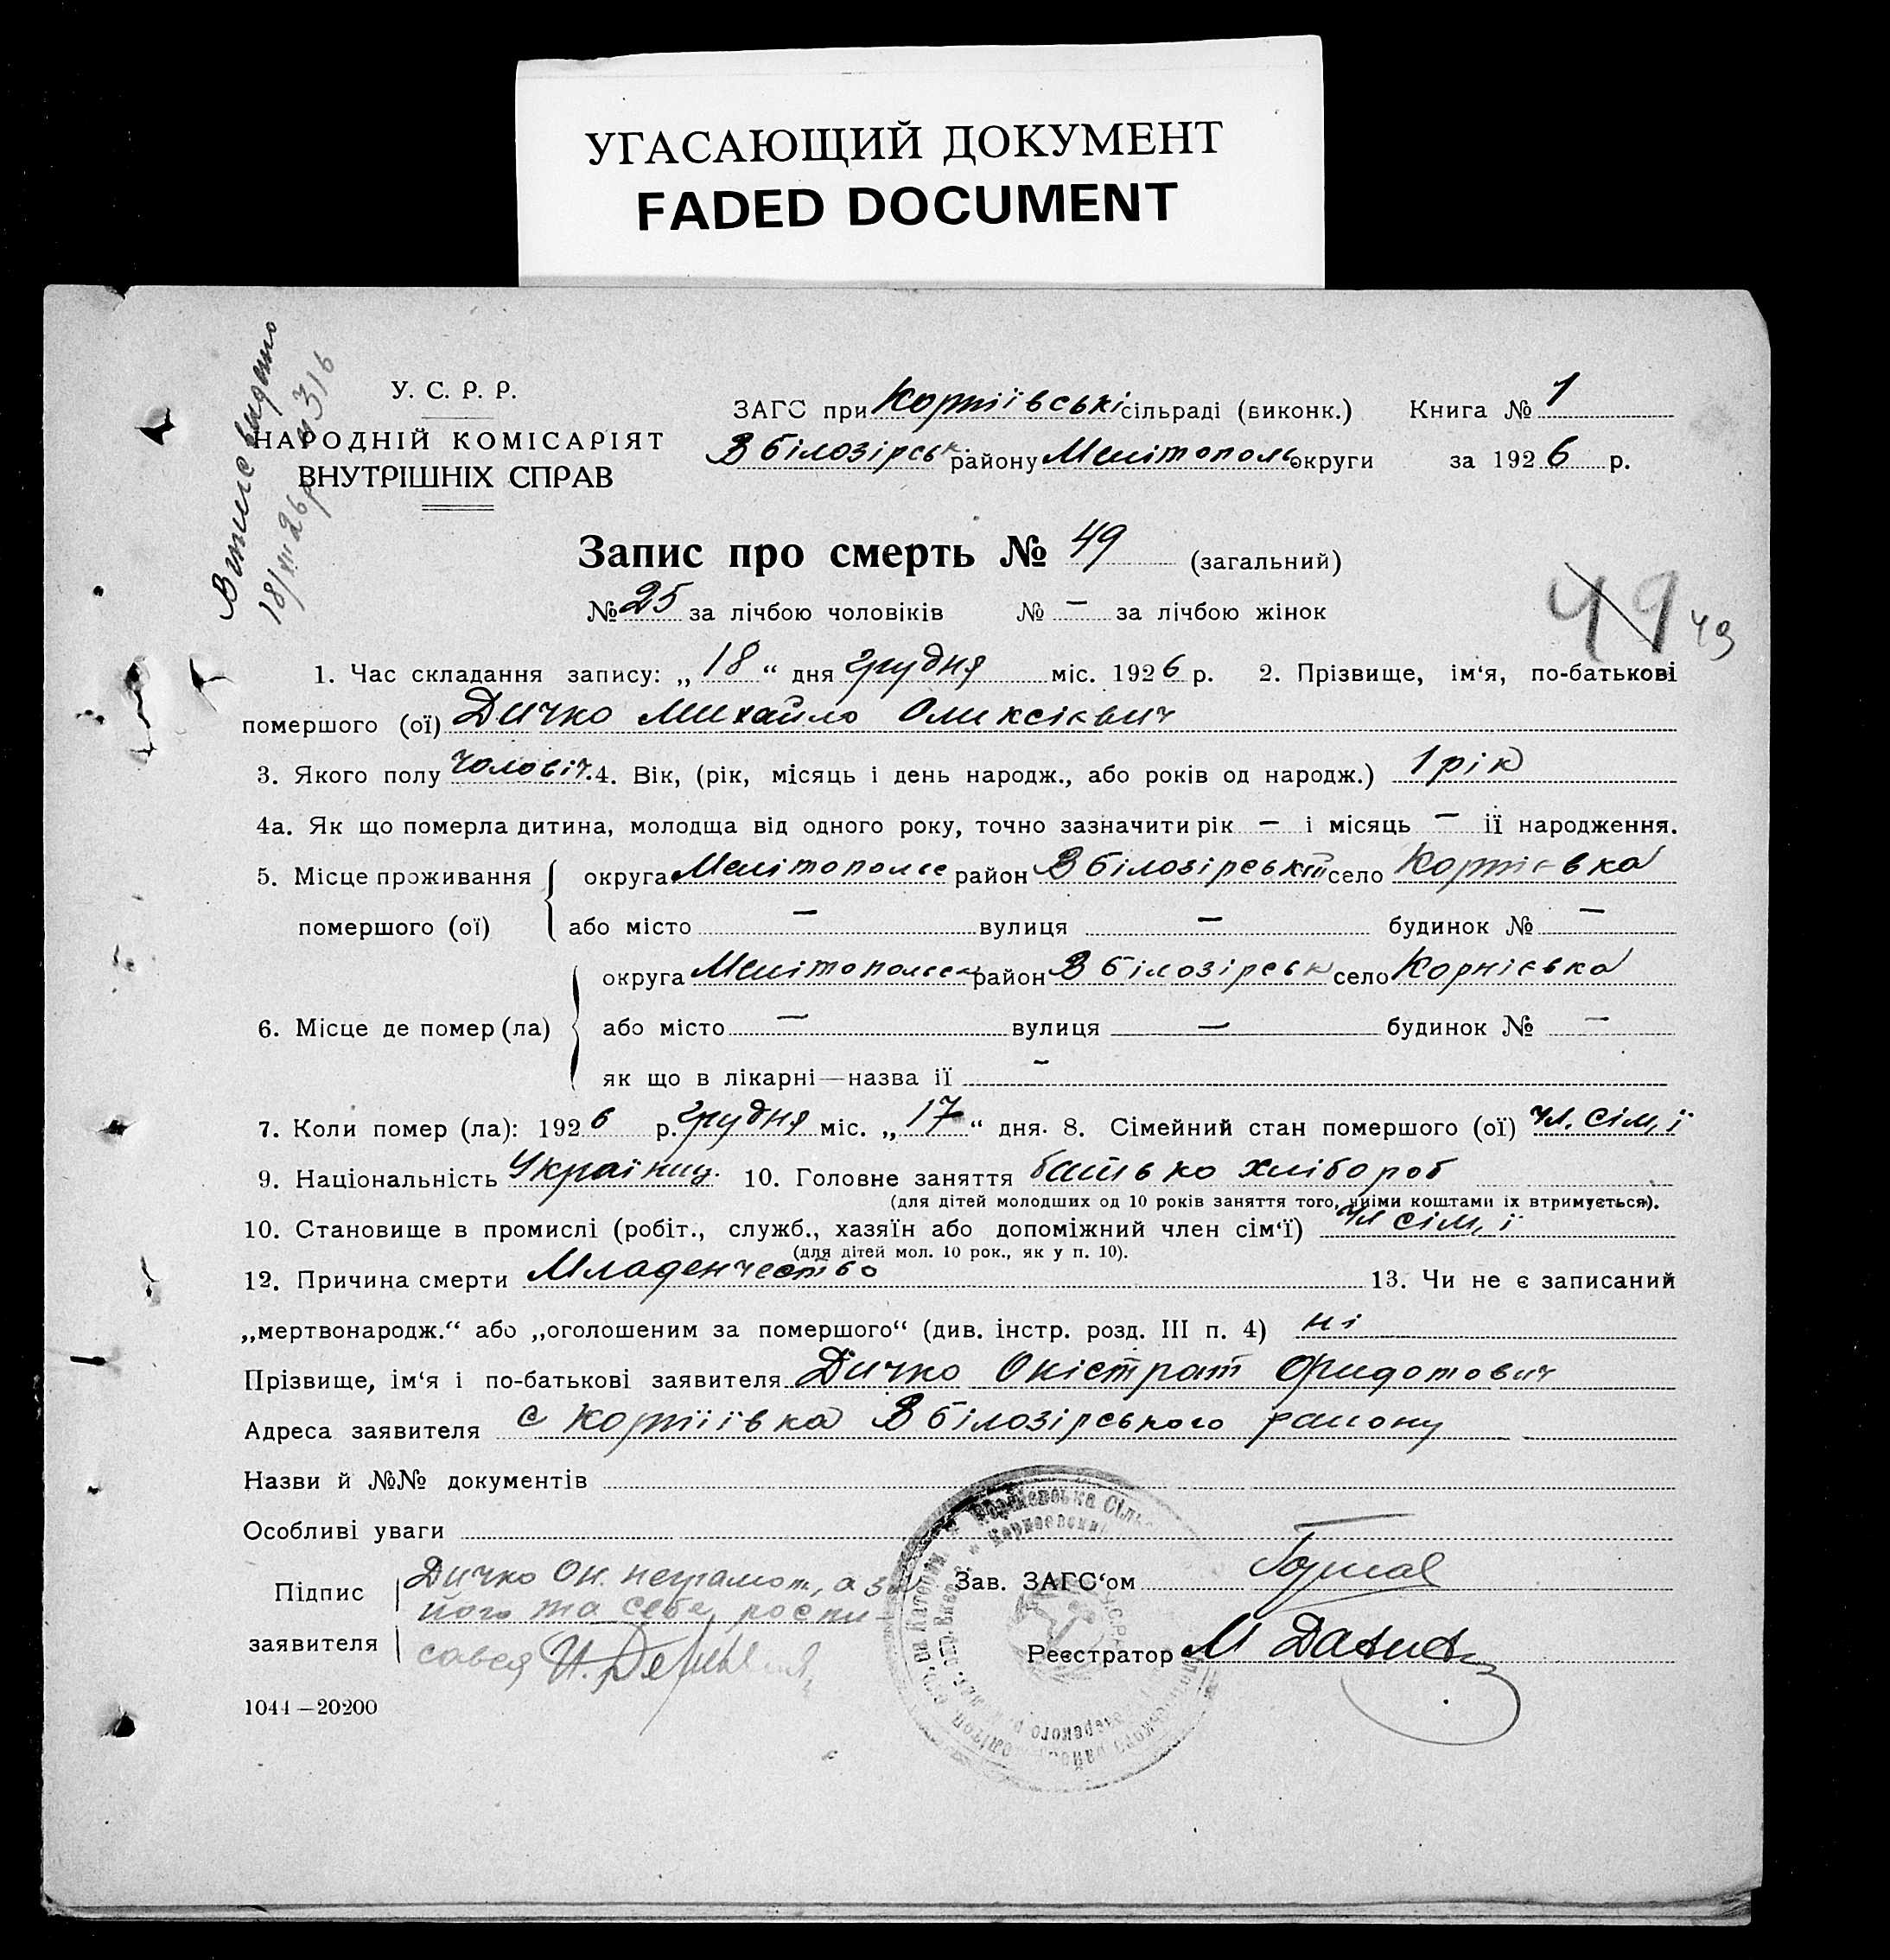 УГАСАЮЩИЙ ДОКУМЕНТ
FADED DOCUMENT
Витис видано
18/XII 26 р № 316
У. С. Р. Р.
НАРОДНІЙ КОМІСАРІЯТ
ВНУТРІШНІХ СПРАВ
ЗАГС при Корніівські сільраді (виконк.) Книга № 1
В білозірськ. району Мелітополь округи за 1926 р.
Запис про смерть № 49 (загальний)
№ 25 за лічбою чоловіків № – за лічбою жінок
49 49
1. Час складання запису: „18“ дня грудня міс. 1926 р. 2. Прізвище, ім‘я, по-батькові
помершого (ої) Дичко Михайло Оликсієвич
3. Якого полу чоловіч. 4. Вік, (рік, місяць і день народж., або років од народж.) 1 рік
4а. Як що померла дитина, молодща від одного року, точно зазначити рік – і місяць – її народження.
5. Місце проживання округа Мелітопольс район В білозірський село Корнієвка
помершого (ої) або місто – вулиця – будинок № –
округа Мелітопольськ район В білозірськ село Корнієвка
6. Місце де помер (ла) або місто – вулиця – будинок № –
як що в лікарні—назва її –
7. Коли помер (ла): 1926 р. грудня міс. „17“ дня. 8. Сімейний стан помершого (ої) чл. сім,ї
9. Національність Україниц. 10. Головне заняття батько хлібороб
(для дітей молодших од 10 років заняття того, чиїми коштами їх втримується).
10. Становище в промислі (робіт., служб., хазяїн або допоміжний член сім‘ї) чл сім,ї
(для дітей мол. 10 рок., як у п. 10).
12. Причина смерти Младенчество 13. Чи не є записаний
„мертвонародж.“ або „оголошеним за помершого“ (див. інстр. розд. III п. 4) ні
Прізвище, ім‘я і по-батькові заявителя Дичко Оністрат Фидотович
Адреса заявителя с Корніївка В білозірського району
Назви й №№ документів
Особливі уваги
Підпис Дичко Он. неграмот, а за
його та себе роспи-
заявителя сався И.
Зав. ЗАГС‘ом
Реєстратор М
1044—20200